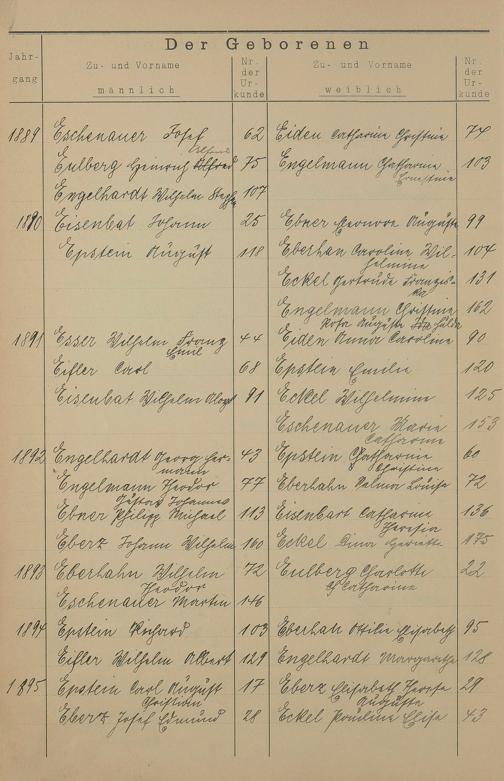 Der Geborenen
Jahr-
gang
Zu- und Vorname
männlich
Nr.
der
Ur-
kunde
Zu- und Vorname
weiblich
Nr.
der
Ur-
kunde
1889 Eschenauer Josef 62 Eiden Catharina Christine 74
Alfred
Eulberg Heinrich Alfred 75 Engelmann Catharina 103
Ernestine
Engelhardt Wilhelm Stephan 107
1890 Eisenbat Johann 25 Ebner Eleonore Auguste 99
Epstein August 118 Eberhan Caroline Wil- 104
helmine
Eckel Gertrude Franzis- 131
ka
Engelmann Christine 162
Rosa Auguste
1891 Esser Wilhelm Franz 44 Eiden Anna Caroline 90
Emil
Eifler Carl 68 Epstein Emilie 120
Eisenbat Wilhelm Aloys 91 Eckel Wilhelmine 125
Eschenauer Maria 153
Catharina
1892 Engelhardt Georg Her- 43 Epstein Catharine 60
mann Christine
Engelmann Theodor 77 Eberhahn Selma Louise 72
Gustav Johannes
Ebner Philipp Michael 113 Eisenbart Catharina 136
Theresia
Eberz Johann Wilhelm 160 Eckel 175
1893 Eberhahn Wilhelm 72 Eulberg Charlotte 22
Theodor Catharine
Eschenauer Martin 146
1894 Epstein Richard 103 Eberhan Ottilie Elisabeth 95
Eifler Wilhelm Albert 129 Engelhardt Margarethe 128
1895 Epstein Carl August 17 Eberz Elisabeth Therese 29
Christian Auguste
Eberz Josef Edmund 28 Eckel Pauline Elise 43